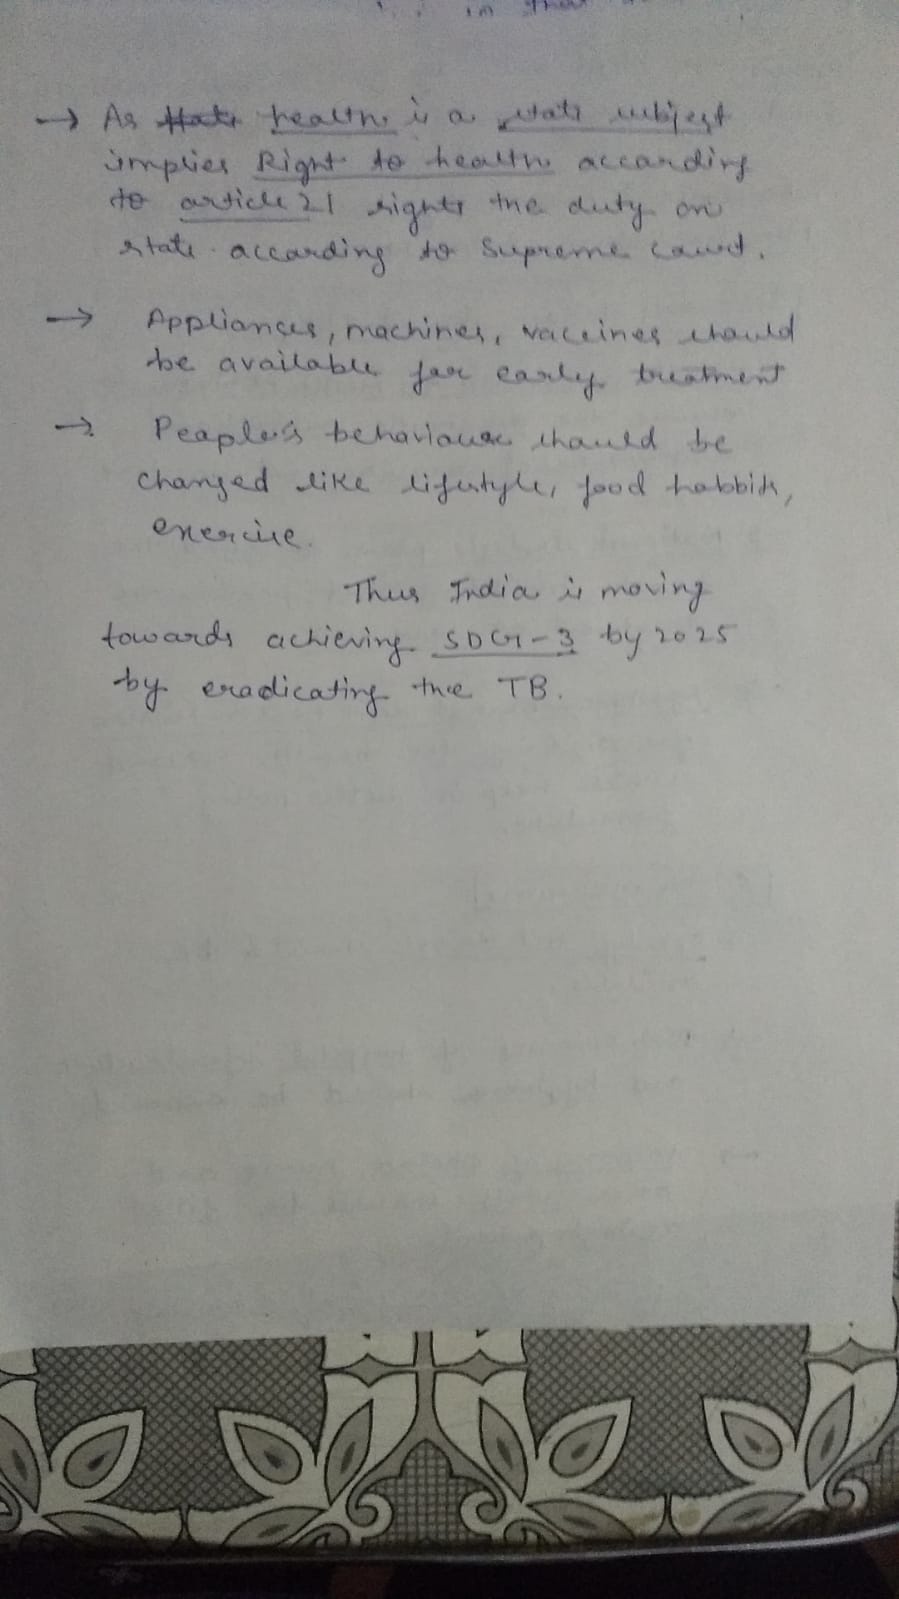 in that
→ As state health is a state subject
implies Right to health according
to article 21 rights the duty on
state according to Supreme Court.
→ Appliances, machines, vaccines should
be available for early treatment
→ People's behaviour should be
changed like lifestyle, food habbits,
exercise.
Thus India is moving
towards achieving SDG-3 by 2025
by eradicating the TB.